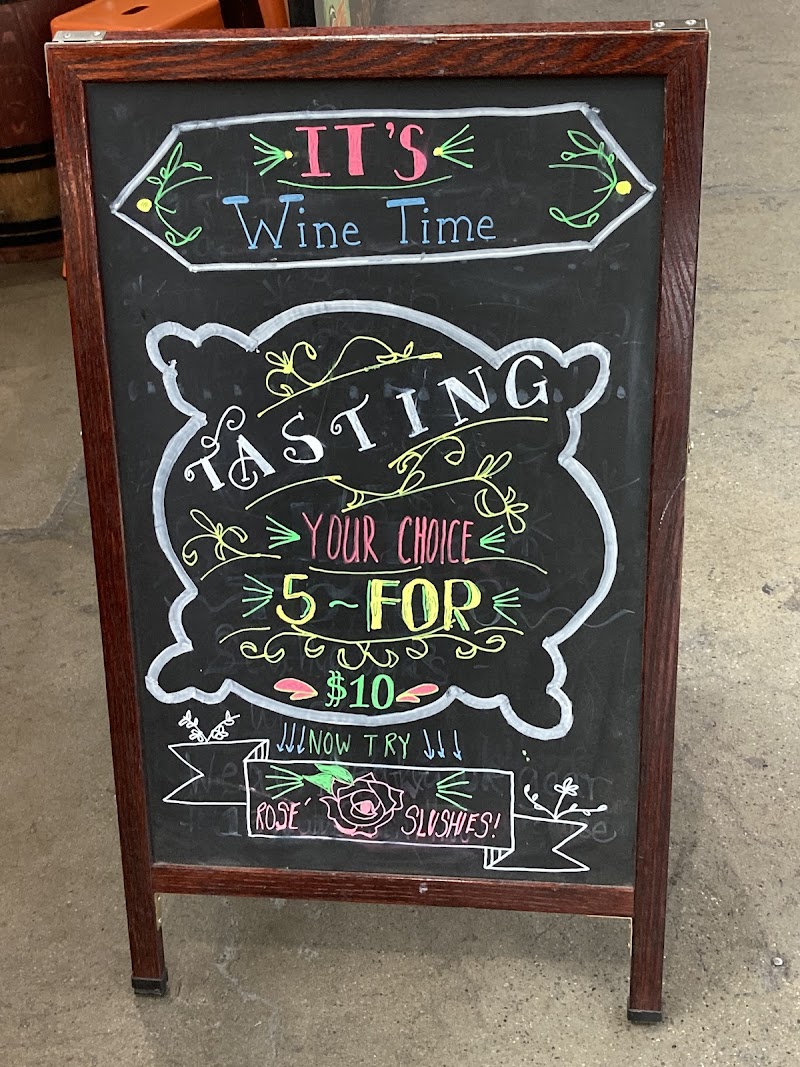 IT'S
Wine Time
TASTING
YOUR CHOICE
5~FOR
$10
NOW TRY
ROSÉ SLUSHIES!